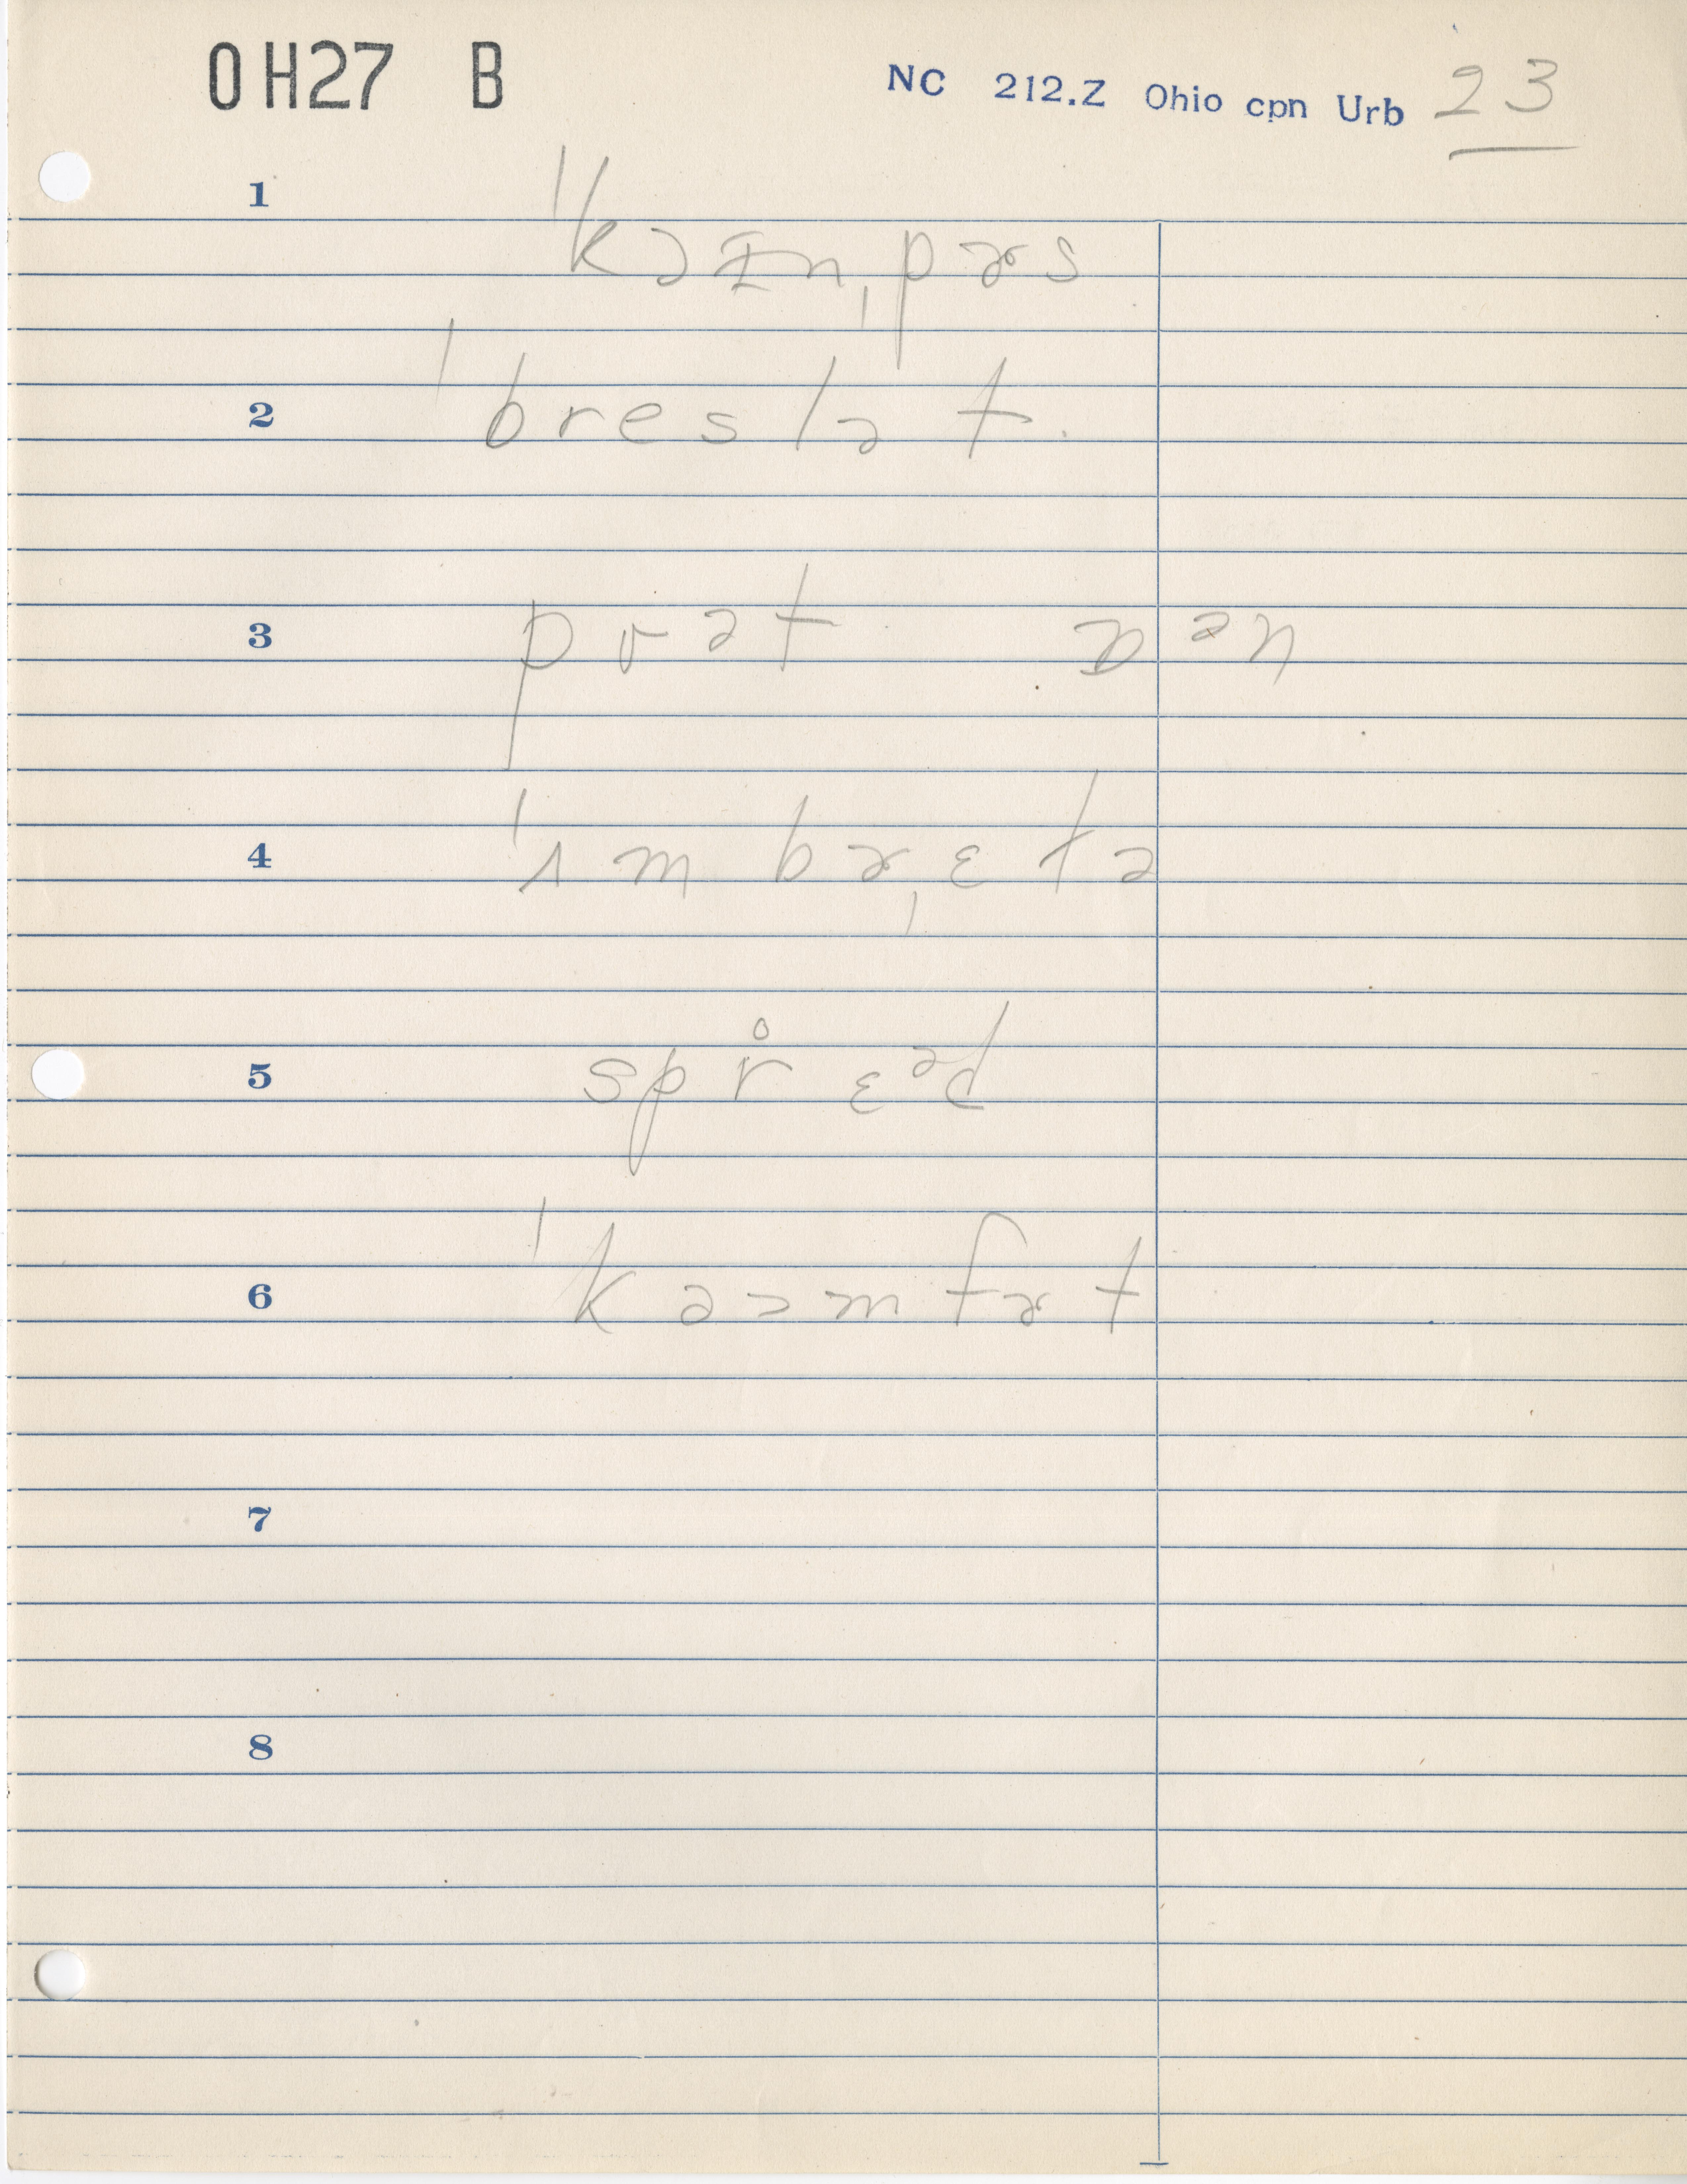 OH27 B
NC 212.Z Ohio cpn Urb 23
1
ˈkəɪn ˌpɚs
2
ˈbreslət
3
pʊət ɒᵊn
4
ˈʌmbɚˌɛlə
5
spr̊ɛᵊd
6
ˈkəɔmfɚt
7
8